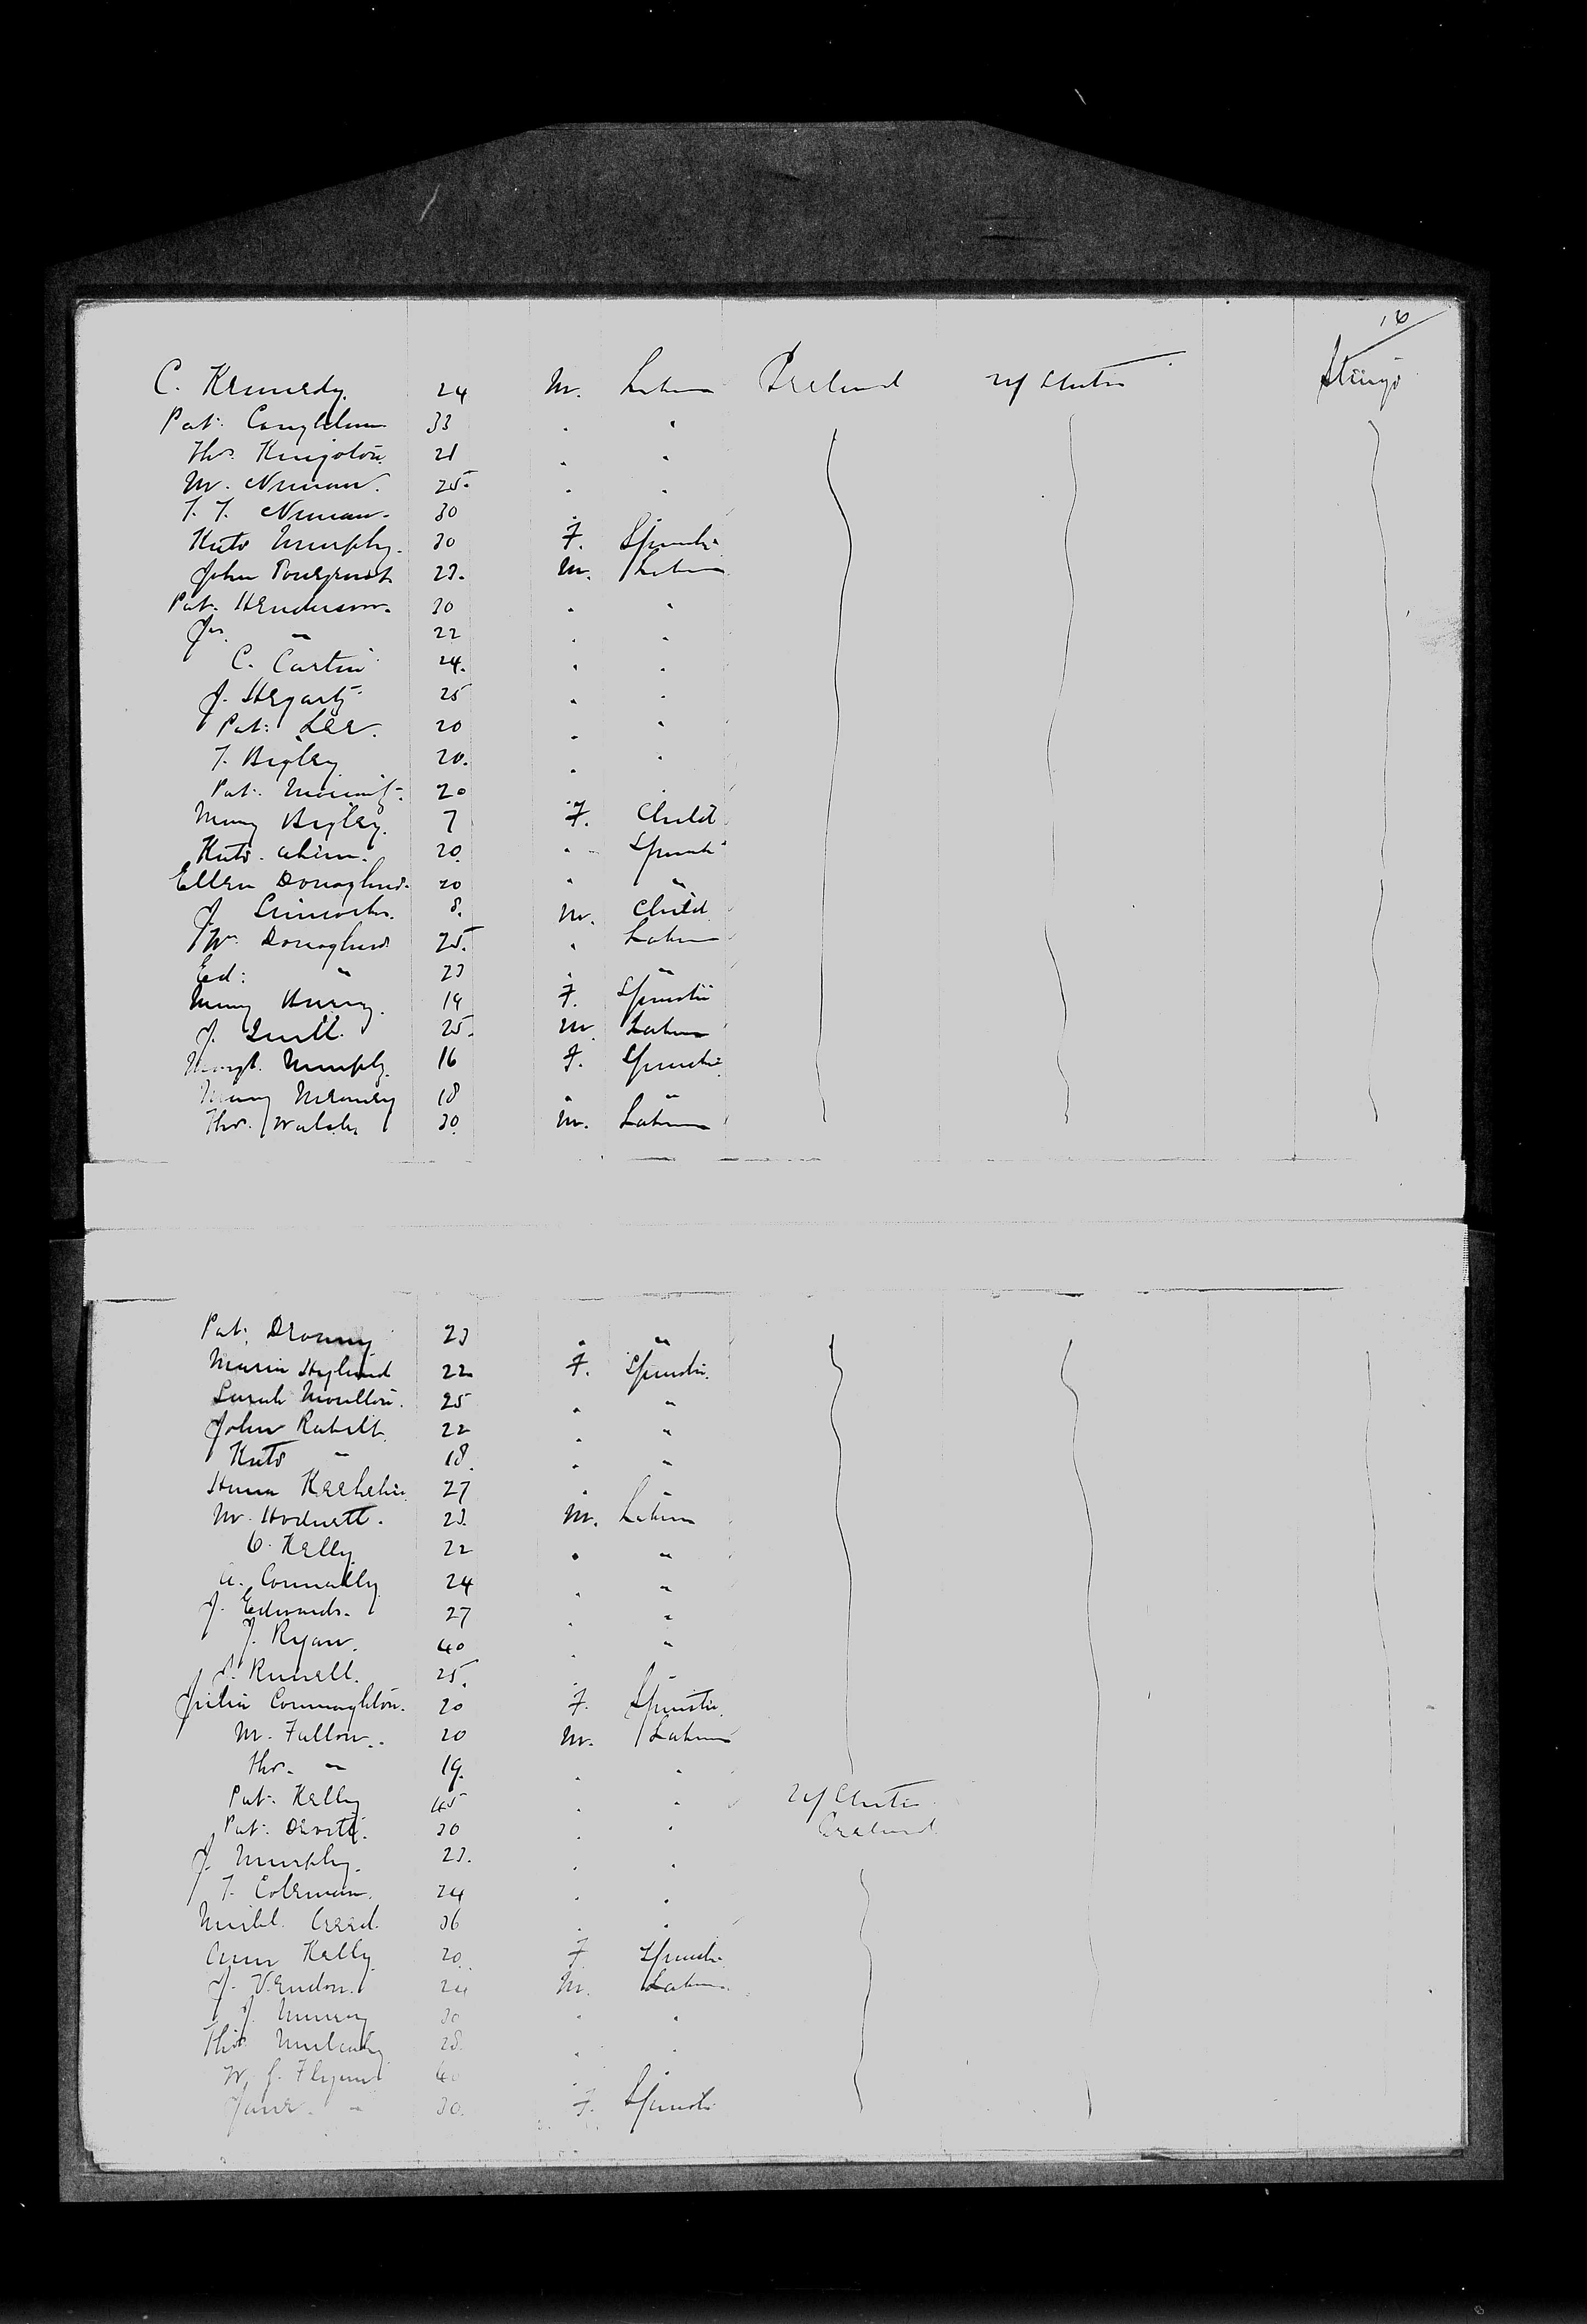 16
C. Kennedy. 24 M. Labour Ireland U/States Steerage
Pat. Coughlan 33 " "
Thos. Kingston 21 " "
M. Noonan. 25. " "
T. T. Noonan. 30 "
Kate Murphy. 30 F. Spinster
John Prendergast 23. M. Labour
Pat. Henderson. 30 " "
Jas. " 22 " "
C. Curtin 24. " "
J. Hegarty 25 " "
Pat. Lee. 20 " "
T. Begley 20. " "
Pat. 20
Mary Begley. 7 F. Child
Kate Ahern. 20. " Spinster
Ellen Donoghue. 20 " "
J. 8. M. Child
Wm. Donoghue 25. " Labour
Ed: " 23 " "
Mary 19 F. Spinster
J. Quill. 25. M. Labour
Margt. Murphy. 16 F. Spinster
Mary 18 " "
Thos. Walsh. 30. M. Labour
Pat. 23 " "
Maria 22 F. Spinster.
Sarah Moulton. 25 " "
John 22 " "
Kate " 18. " "
Hanna 27 "
M. Hodnett. 23. M. Labour
C. Kelly 22 " "
A. Connolly 24 " "
J. Edwards. 27 " "
J. Ryan. 40 " "
J. Russell. 25. " "
Julia Connaughton. 20 F. Spinster.
M. Fallon. 20 M. Labour
Thos. " 19. " "
Pat. Kelly 45 " " U/States
Pat. 30 " " Ireland
J. Murphy. 23. " "
T. Coleman. 24 " "
Michl. Creed. 36 " "
Ann Kelly 20. F. Spinster
J. 24 M. Labour
J. Murray 30 " "
Thos. Mulcahy 28. " "
W. J. Flynn 40 "
Jane " 30. F. Spinster